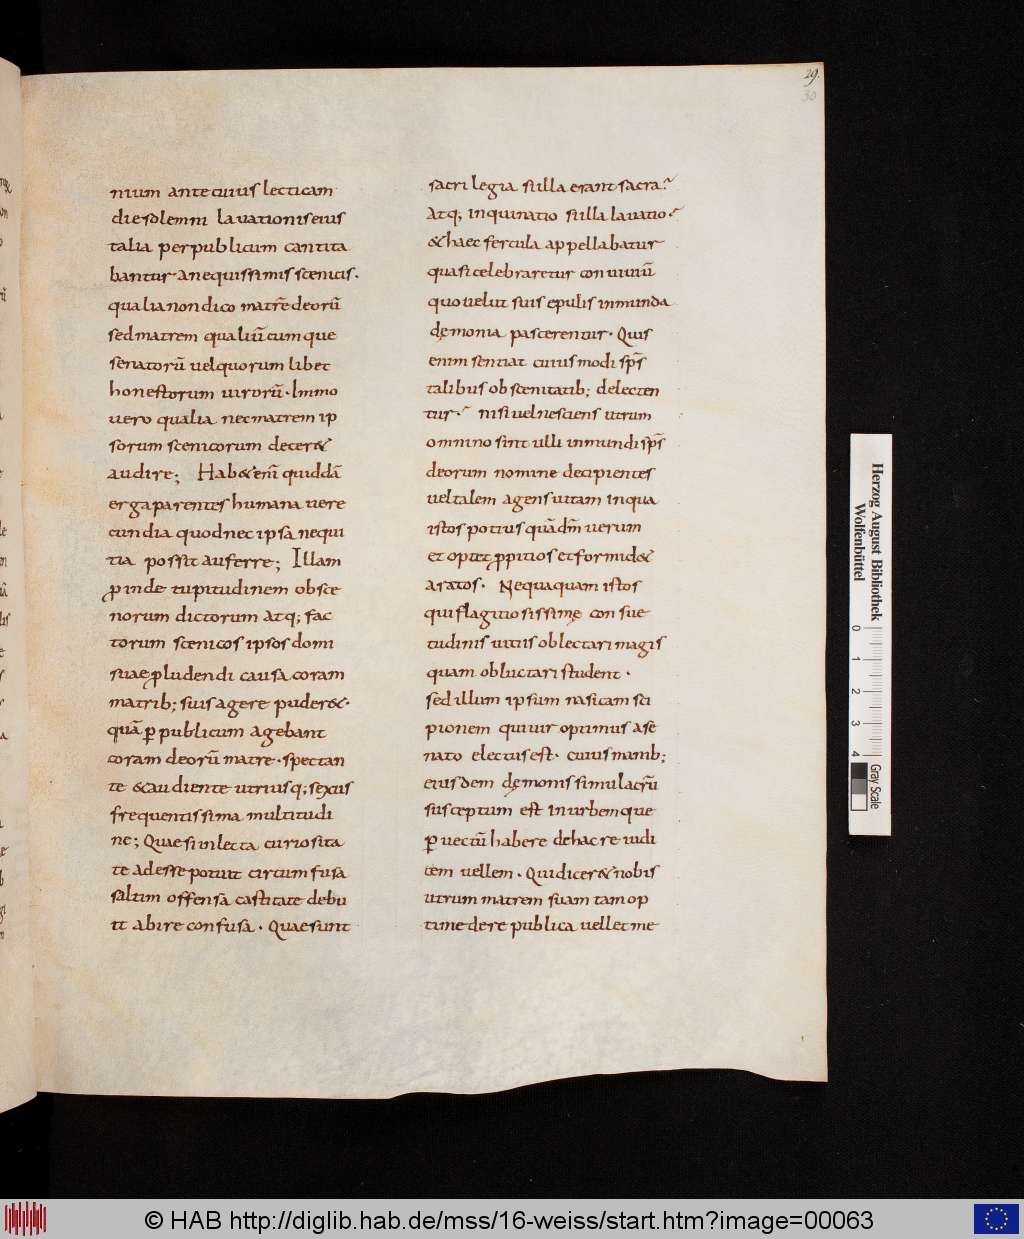 29.
30
nium antecuius lecticam
die solemni lauationis eius
talia per publicum cantita
bantur anequissimis scenicis.
qualia non dico matrē deorū
sed matrem qualiūcumque
senatorū uel quorum libet
honestorum uirorū. Immo
uero qualia nec matrem ip
sorum scenicorum decer&
audire; Hab& em̄ quiddā
erga parentes humana uere
cundia quod nec ipsa nequi
tia possit auferre; Illam
ꝓinde tupitudinem obsce
norum dictorum atq; fac
torum scenicos ipsos domi
suae ꝓludendi causa coram
matrib; suis agere puder&.
quā ꝑ publicum agebant
coram deorū matre. spectan
te & audiente utriusq; sexus
frequentissima multitudi
ne; Quae si inlecta curiosita
te adesse potuit circumfusa
saltim offensa castitate debu
it abire confusa. Quae sunt
sacrilegia si illa erant sacra?
Atq; inquinatio si illa lauatio?
& haec fercula appellabatur
quasi celebraretur conuiuiū
quo uelut suis epulis inmunda
dęmonia pascerentur. Quis
enim sentiat cuius modi sp̄s
talibus obscenitatib; delecten
tur? nisi uel nesciens utrum
omnino sint ulli inmundi sp̄s
deorum nomine decipientes
uel talem agens uitam in qua
istos potius quā dm̄ uerum
et optet ꝓpitios et formid&
aratos. Nequaquam istos
qui flagitiosissimę consue
tudinis uitiis oblectari magis
quam obluctari student.
sed illum ipsum nasicam sci
pionem qui uir optimus a se
nato electus est. cuius manib;
eiusdem dęmonis simulacrū
susceptum est in urbemque
ꝑuectū habere de hac re iudi
cem uellem. Qui dicer& nobis
utrum matrem suam tam op
time de re publica uellet me
Herzog August Bibliothek
Wolfenbüttel
0 1 2 3 4
Gray Scale
© HAB http://diglib.hab.de/mss/16-weiss/start.htm?image=00063